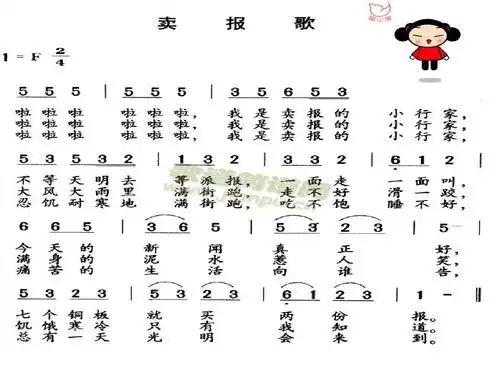 卖 报 歌
1 = F 2/4
5 5 5 | 5 5 5 | 3 5 6 5 3 | 2 3 5 |
啦 啦 啦, 啦 啦 啦, 我 是 卖 报 的 小 行 家,
啦 啦 啦, 啦 啦 啦, 我 是 卖 报 的 小 行 家,
啦 啦 啦, 啦 啦 啦, 我 是 卖 报 的 小 行 家,
5 3 5 3 2 | 1 3 2 |
不 等 天 明 去 等 派 报, 一 面 走 一 面 叫,
大 风 大 雨 里 满 街 跑, 走 不 好 滑 一 跤,
忍 饥 耐 寒 地 满 街 跑, 吃 不 饱 睡 不 好,
6 6 5 | 3 6 5 | 5 3 2 3 | 5 - |
今 天 的 新 闻 真 正 好,
满 身 的 泥 水 惹 人 笑,
痛 苦 的 生 活 向 谁 告,
5 3 2 3 | 5 3 2 3 | 6 1 2 3 | 1 - ‖
七 个 铜 板 就 买 两 份 报。
饥 饿 寒 冷 只 有 我 知 道。
总 有 一 天 光 明 会 来 到。